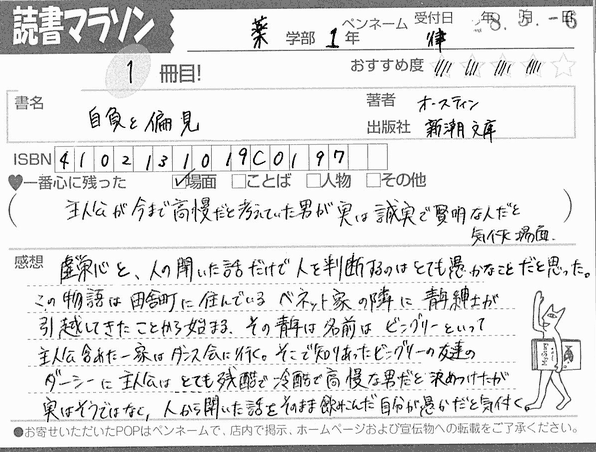 読書マラソン
薬 学部 1 年 ペンネーム 律 受付日 年 月 日 -8.5.-6
1 冊目! おすすめ度 ☆☆☆☆☆
書名 自負と偏見 著者 オースティン
出版社 新潮文庫
ISBN 4102131019C0197
♥一番心に残った ☑場面 □ことば □人物 □その他
(主人公が今まで高慢だと考えていた男が実は誠実で賢明な人だと
気付た場面.)
感想 虚栄心と、人の聞いた話だけで人を判断するのはとても愚かなことだと思った。
この物語は田舎町に住んでいるベネット家の隣に青年紳士が
引越してきたことから始まる. その青年は名前はビングリーといって
主人公含めた一家はダンス会に行く。そこで知りあったビングリーの友達の
ダーシーに主人公はとても残酷で冷酷で高慢な男だと決めつけたが
実はそうではなく, 人から聞いた話をそのまま飲みこんだ自分が愚かだと気付く。
●お寄せいただいたPOPはペンネームで、店内で掲示、ホームページおよび宣伝物への転載をご了承ください。